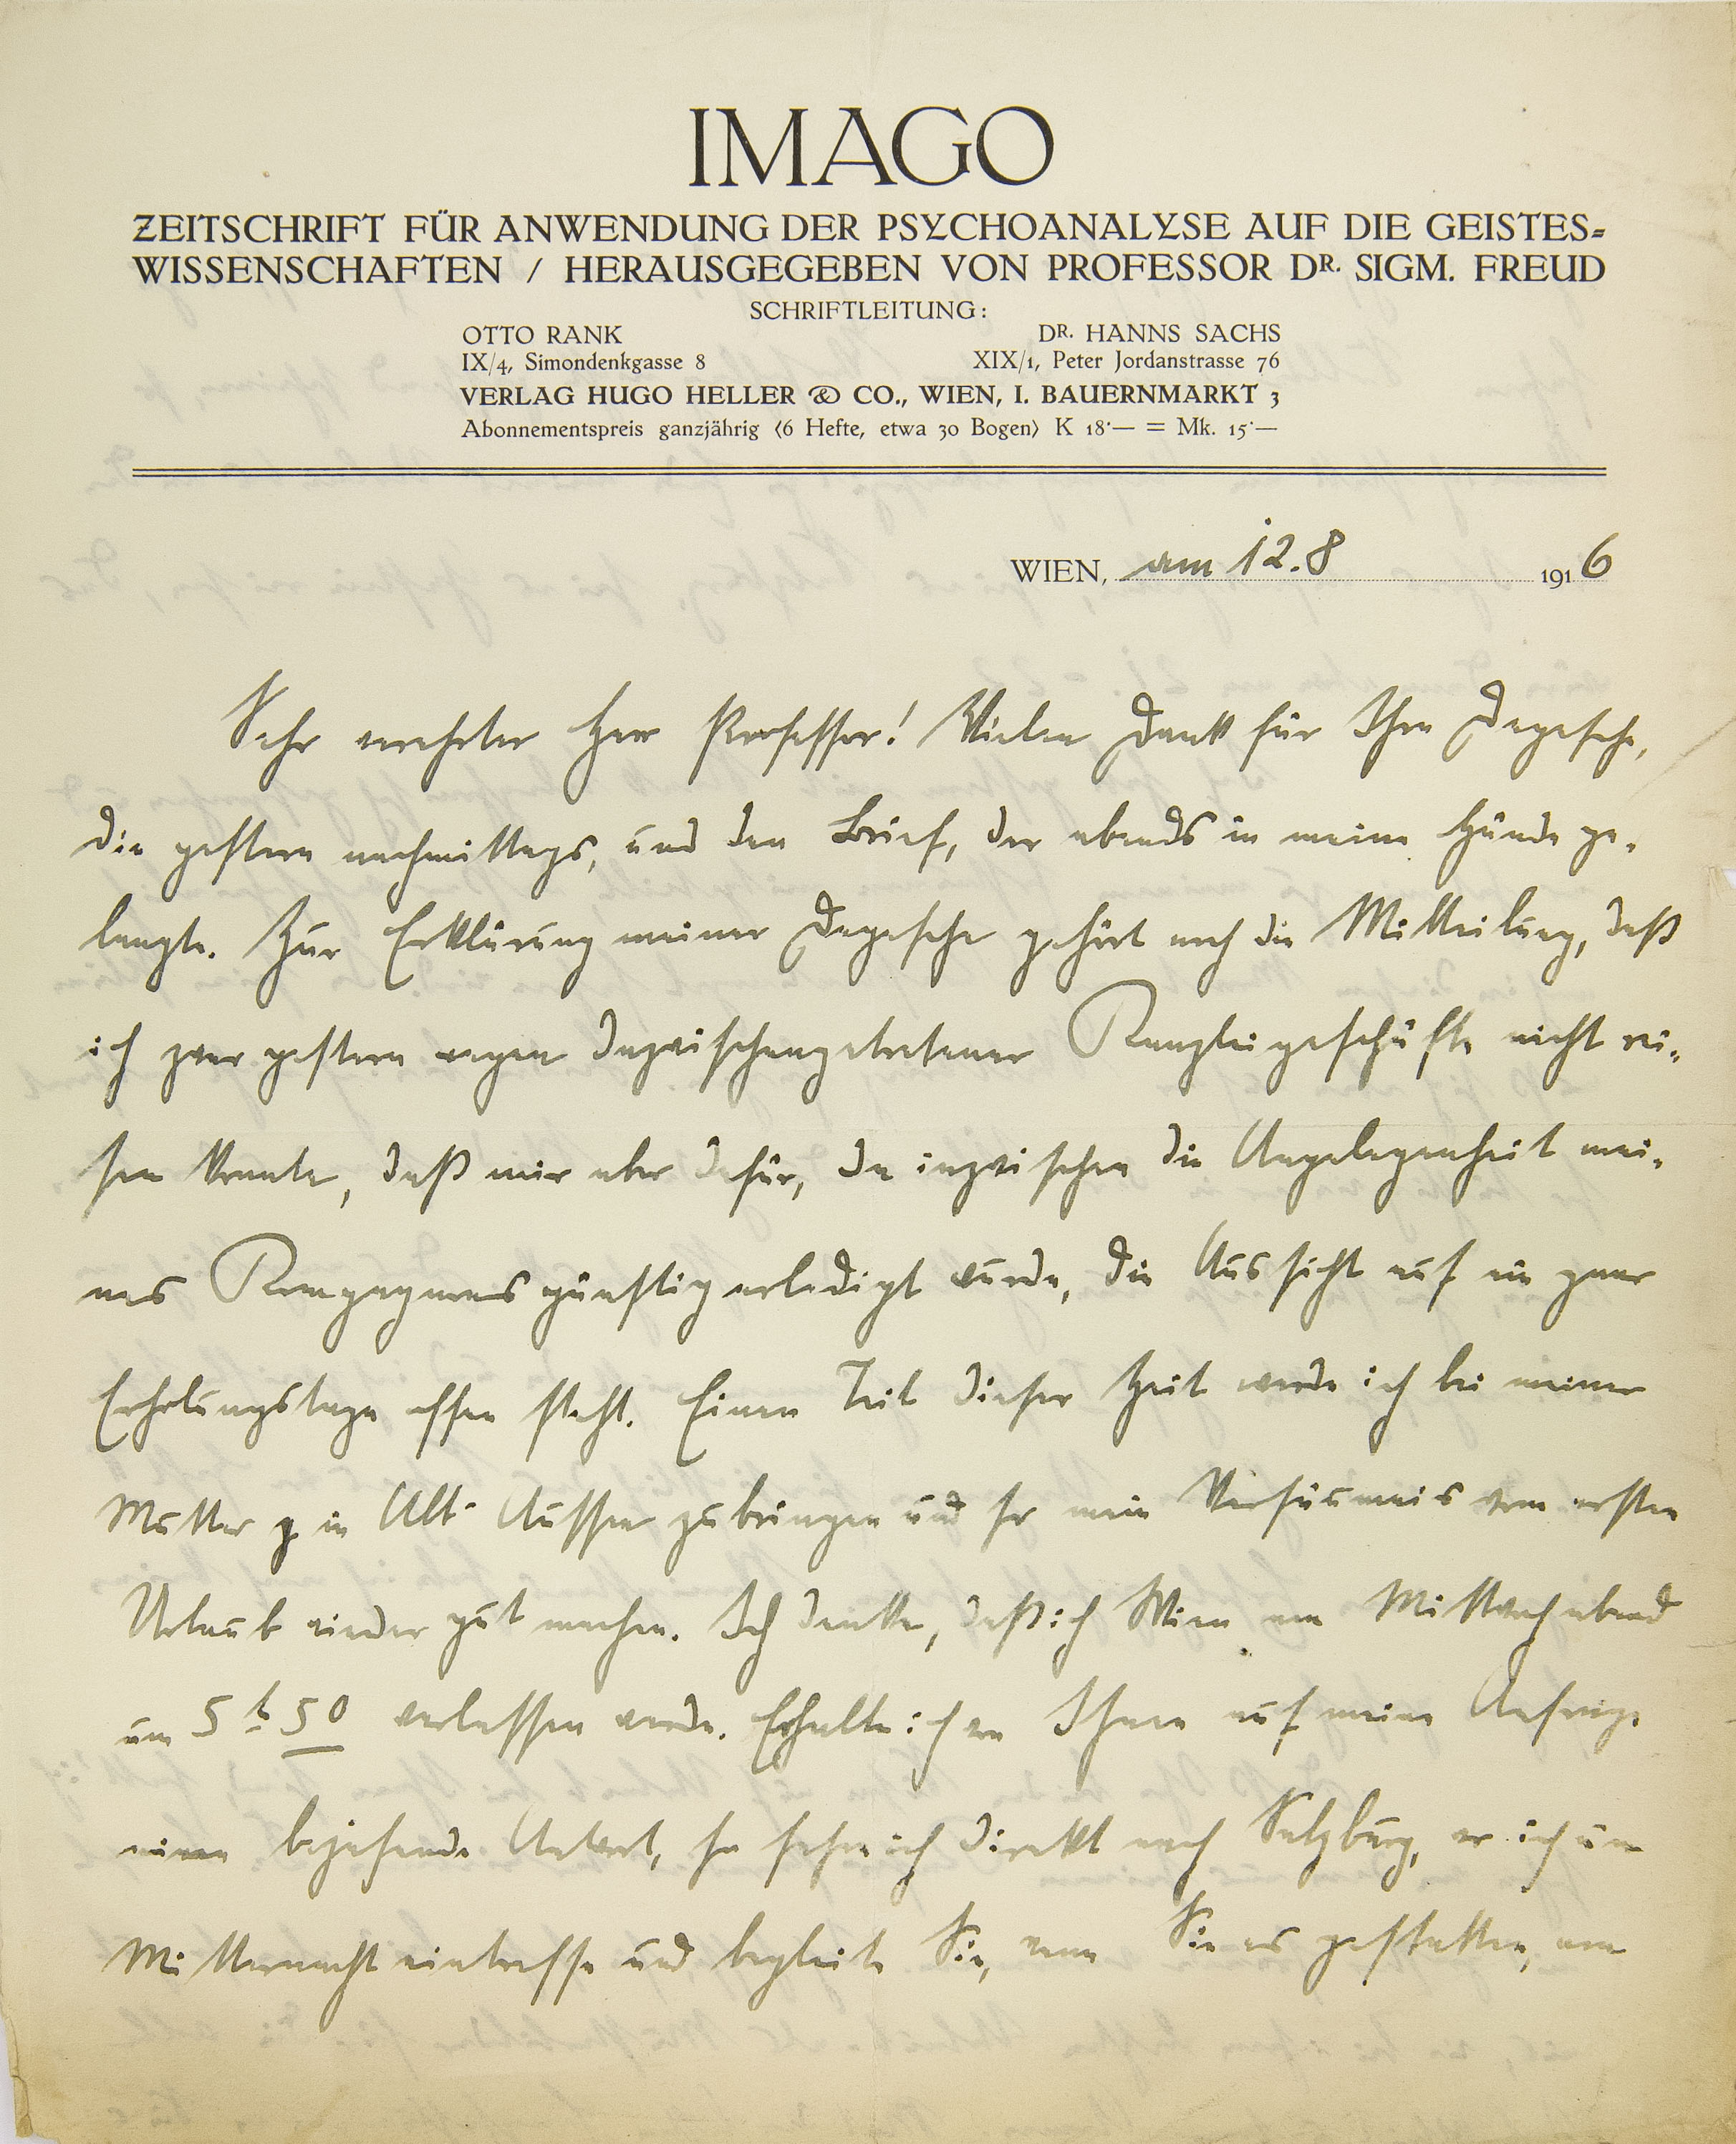 IMAGO
ZEITSCHRIFT FÜR ANWENDUNG DER PSYCHOANALYSE AUF DIE GEISTES=
WISSENSCHAFTEN / HERAUSGEGEBEN VON PROFESSOR DR. SIGM. FREUD
SCHRIFTLEITUNG:
OTTO RANK DR. HANNS SACHS
IX/4, Simondenkgasse 8 XIX/1, Peter Jordanstrasse 76
VERLAG HUGO HELLER & CO., WIEN, I. BAUERNMARKT 3
Abonnementspreis ganzjährig (6 Hefte, etwa 30 Bogen) K 18·— = Mk. 15·—
WIEN, am 12.8 1916
Sehr verehrter Herr Professor! Vielen Dank für Ihre Depesche,
die gestern nachmittags, und den Brief, der abends in meine Hände ge-
langte. Zur Erklärung meiner Depesche gehört noch die Mitteilung, daß
ich zwar gestern wegen dazwischengetretener Kanzleigeschäfte nicht rei-
sen konnte, daß mir aber dafür, da inzwischen die Angelegenheit mei-
nes Kompagnons günstig erledigt wurde, die Aussicht auf ein paar
Erholungstage offen steht. Einen Teil dieser Zeit werde ich bei meiner
Mutter in Alt-Aussee zubringen und so mein Versäumnis vom ersten
Urlaub wieder gut machen. Ich denke, daß ich Wien am Mittwoch abend
um 5 h 50 verlassen werde. Erhalte ich von Ihnen auf meine Anfrage
eine bejahende Antwort, so fahre ich direkt nach Salzburg, wo ich um
Mitternacht eintreffe und begleite Sie, wenn Sie es gestatten, am